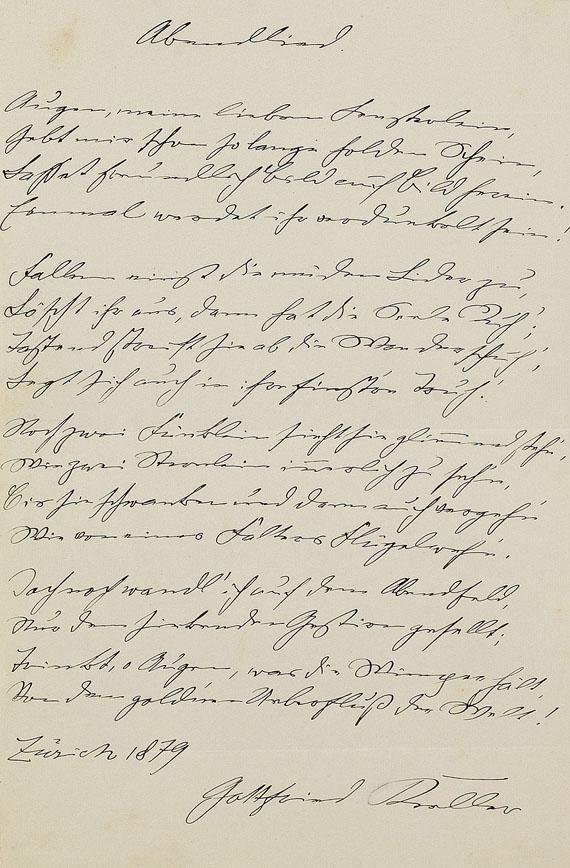 Abendlied.
Augen, meine lieben Fensterlein,
Gebt mir schon so lange holden Schein,
Lasset freundlich Bild auf Bild herein.
Einmal werdet ihr verdunkelt sein!
Fallen einst die müden Lider zu,
Löscht ihr aus, dann hat die Seele Ruh';
Tastend streift sie ab die Wanderschuh',
Legt sich auch in ihre finstre Truh'.
Noch zwei Fünklein sieht sie glimmend stehn,
Wie zwei Sternlein innerlich zu sehn,
Bis sie schwanken und dann auch vergehn
Wie von eines Falters Flügelwehn.
Doch noch wandl' ich auf dem Abendfeld,
Nur dem sinkenden Gestirn gesellt;
Trinkt, o Augen, was die Wimper hält,
Von dem goldnen Ueberfluß der Welt!
Zürich 1879
Gottfried Keller